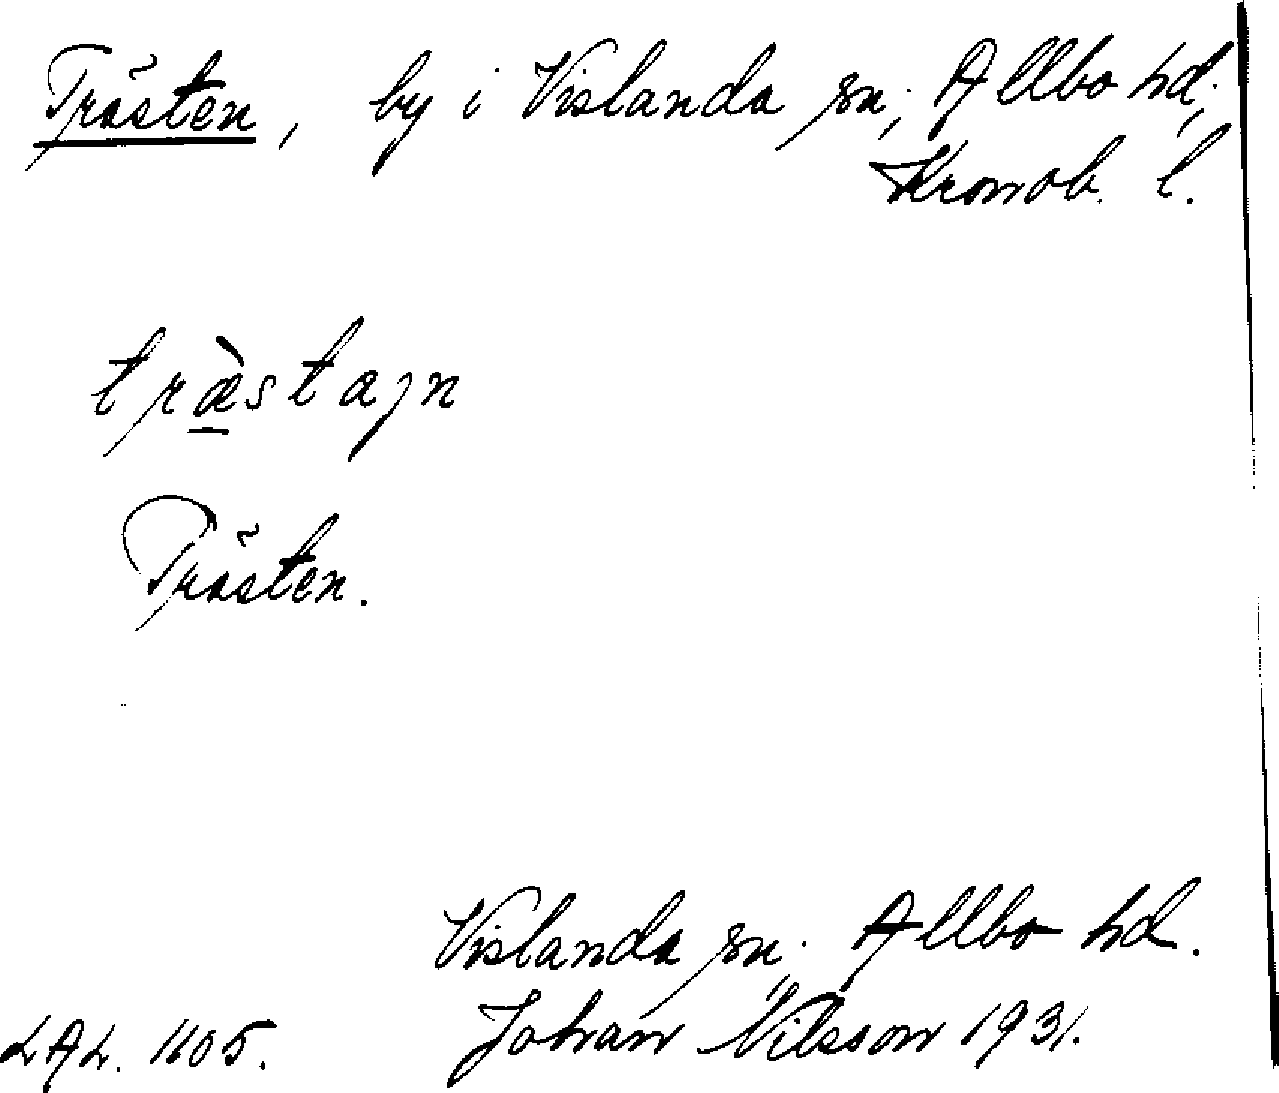 Trästen, by i Vislanda sn, Allbo hd,
Kronob. l.
træ̀stajn
Trästen.
Vislanda sn, Allbo hd.
LAL. 1105. Johan Nilsson 1931.